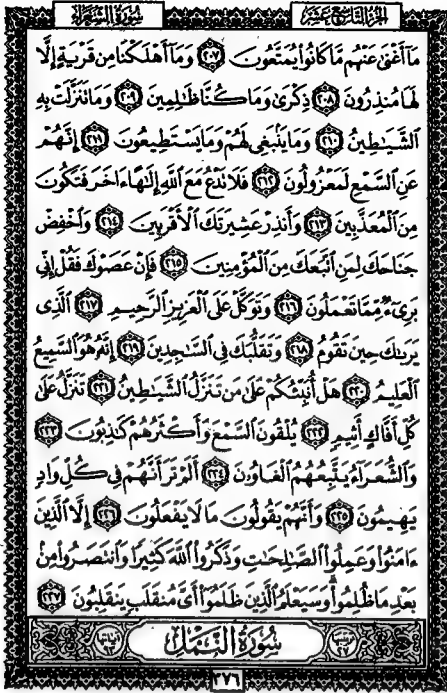 سورة الشعراء
الجزء التاسع عشر
مَآ أَغْنَىٰ عَنْهُم مَّا كَانُوا۟ يُمَتَّعُونَ ٢٠٧ وَمَآ أَهْلَكْنَا مِن قَرْيَةٍ إِلَّا
لَهَا مُنذِرُونَ ٢٠٨ ذِكْرَىٰ وَمَا كُنَّا ظَٰلِمِينَ ٢٠٩ وَمَا تَنَزَّلَتْ بِهِ
ٱلشَّيَٰطِينُ ٢١٠ وَمَا يَنۢبَغِى لَهُمْ وَمَا يَسْتَطِيعُونَ ٢١١ إِنَّهُمْ
عَنِ ٱلسَّمْعِ لَمَعْزُولُونَ ٢١٢ فَلَا تَدْعُ مَعَ ٱللَّهِ إِلَٰهًا ءَاخَرَ فَتَكُونَ
مِنَ ٱلْمُعَذَّبِينَ ٢١٣ وَأَنذِرْ عَشِيرَتَكَ ٱلْأَقْرَبِينَ ٢١٤ وَٱخْفِضْ
جَنَاحَكَ لِمَنِ ٱتَّبَعَكَ مِنَ ٱلْمُؤْمِنِينَ ٢١٥ فَإِنْ عَصَوْكَ فَقُلْ إِنِّى
بَرِىٓءٌ مِّمَّا تَعْمَلُونَ ٢١٦ وَتَوَكَّلْ عَلَى ٱلْعَزِيزِ ٱلرَّحِيمِ ٢١٧ ٱلَّذِى
يَرَىٰكَ حِينَ تَقُومُ ٢١٨ وَتَقَلُّبَكَ فِى ٱلسَّٰجِدِينَ ٢١٩ إِنَّهُۥ هُوَ ٱلسَّمِيعُ
ٱلْعَلِيمُ ٢٢٠ هَلْ أُنَبِّئُكُمْ عَلَىٰ مَن تَنَزَّلُ ٱلشَّيَٰطِينُ ٢٢١ تَنَزَّلُ عَلَىٰ
كُلِّ أَفَّاكٍ أَثِيمٍ ٢٢٢ يُلْقُونَ ٱلسَّمْعَ وَأَكْثَرُهُمْ كَٰذِبُونَ ٢٢٣
وَٱلشُّعَرَآءُ يَتَّبِعُهُمُ ٱلْغَاوُۥنَ ٢٢٤ أَلَمْ تَرَ أَنَّهُمْ فِى كُلِّ وَادٍ
يَهِيمُونَ ٢٢٥ وَأَنَّهُمْ يَقُولُونَ مَا لَا يَفْعَلُونَ ٢٢٦ إِلَّا ٱلَّذِينَ
ءَامَنُوا۟ وَعَمِلُوا۟ ٱلصَّٰلِحَٰتِ وَذَكَرُوا۟ ٱللَّهَ كَثِيرًا وَٱنتَصَرُوا۟ مِنۢ
بَعْدِ مَا ظُلِمُوا۟ وَسَيَعْلَمُ ٱلَّذِينَ ظَلَمُوٓا۟ أَىَّ مُنقَلَبٍ يَنقَلِبُونَ ٢٢٧
سورة النمل
٣٧٦